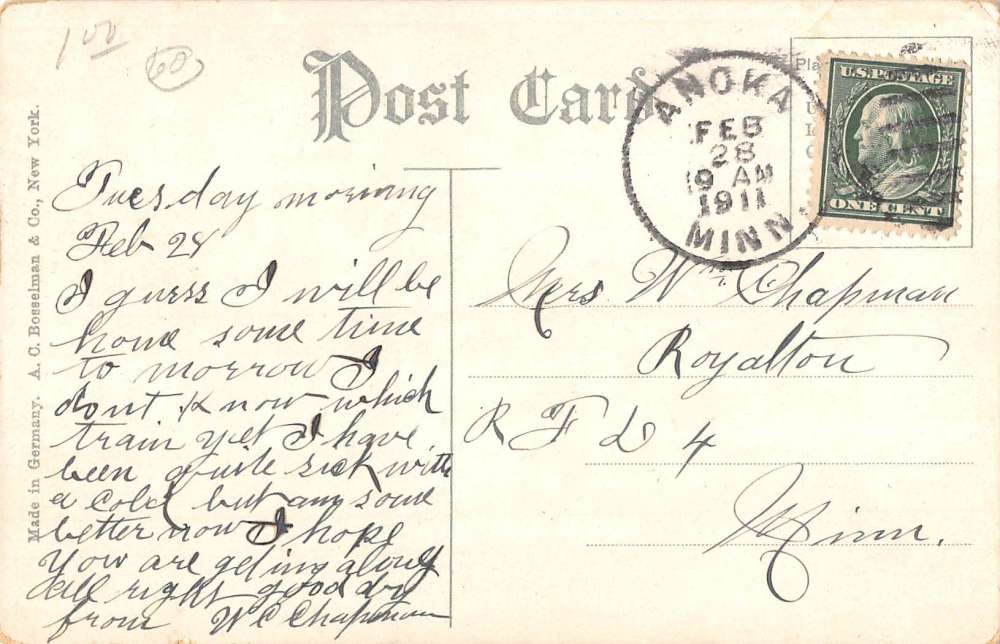 1 00
60
Post Card
ANOKA
FEB
28
9 AM
1911
MINN.
Pla
U.S. POSTAGE
ONE CENT
Made in Germany. A. C. Bosselman & Co., New York.
Tuesday morning
Feb 28
I guess I will be
home some time
to morrow I
dont know which
train yet I have
been quite sick with
a cold but am some
better now I hope
you are geting along
all right good by
from W C Chapman
Mrs Wm Chapman
Royalton
R F D 4
Minn.